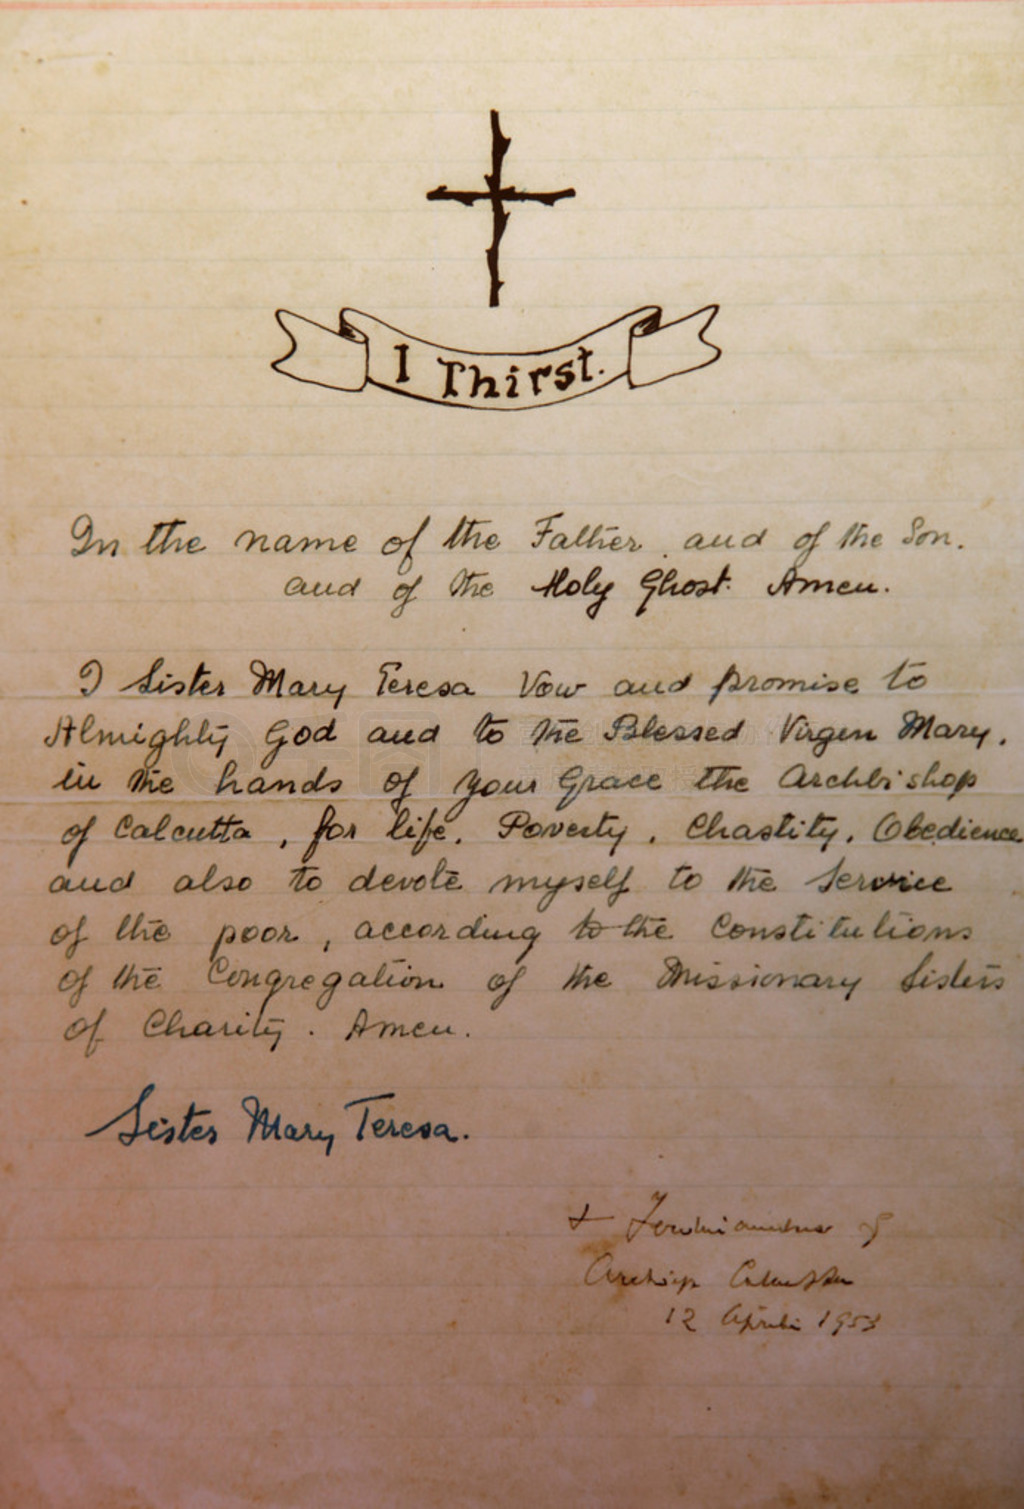 I Thirst.
In the name of the Father. and of the Son.
and of the Holy Ghost. Amen.
I Sister Mary Teresa Vow and promise to
Almighty God and to the Blessed Virgin Mary.
in the hands of your Grace the Archbishop
of Calcutta, for life. Poverty. Chastity. Obedience
and also to devote myself to the Service
of the poor, according to the Constitutions
of the Congregation of the Missionary Sisters
of Charity. Amen.
Sister Mary Teresa.
+ Ferdinandus
12 Aprilis 1953